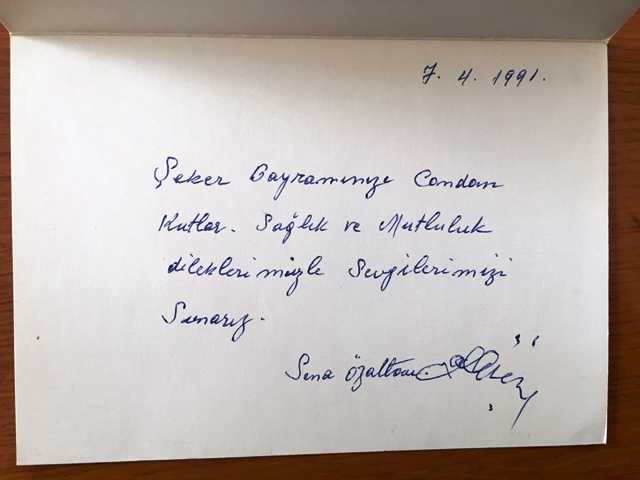 7. 4. 1991.
Şeker Bayramınızı Candan
Kutlar. Sağlık ve Mutluluk
dileklerimizle Sevgilerimizi
Sunarız.
Sena Özaltan.